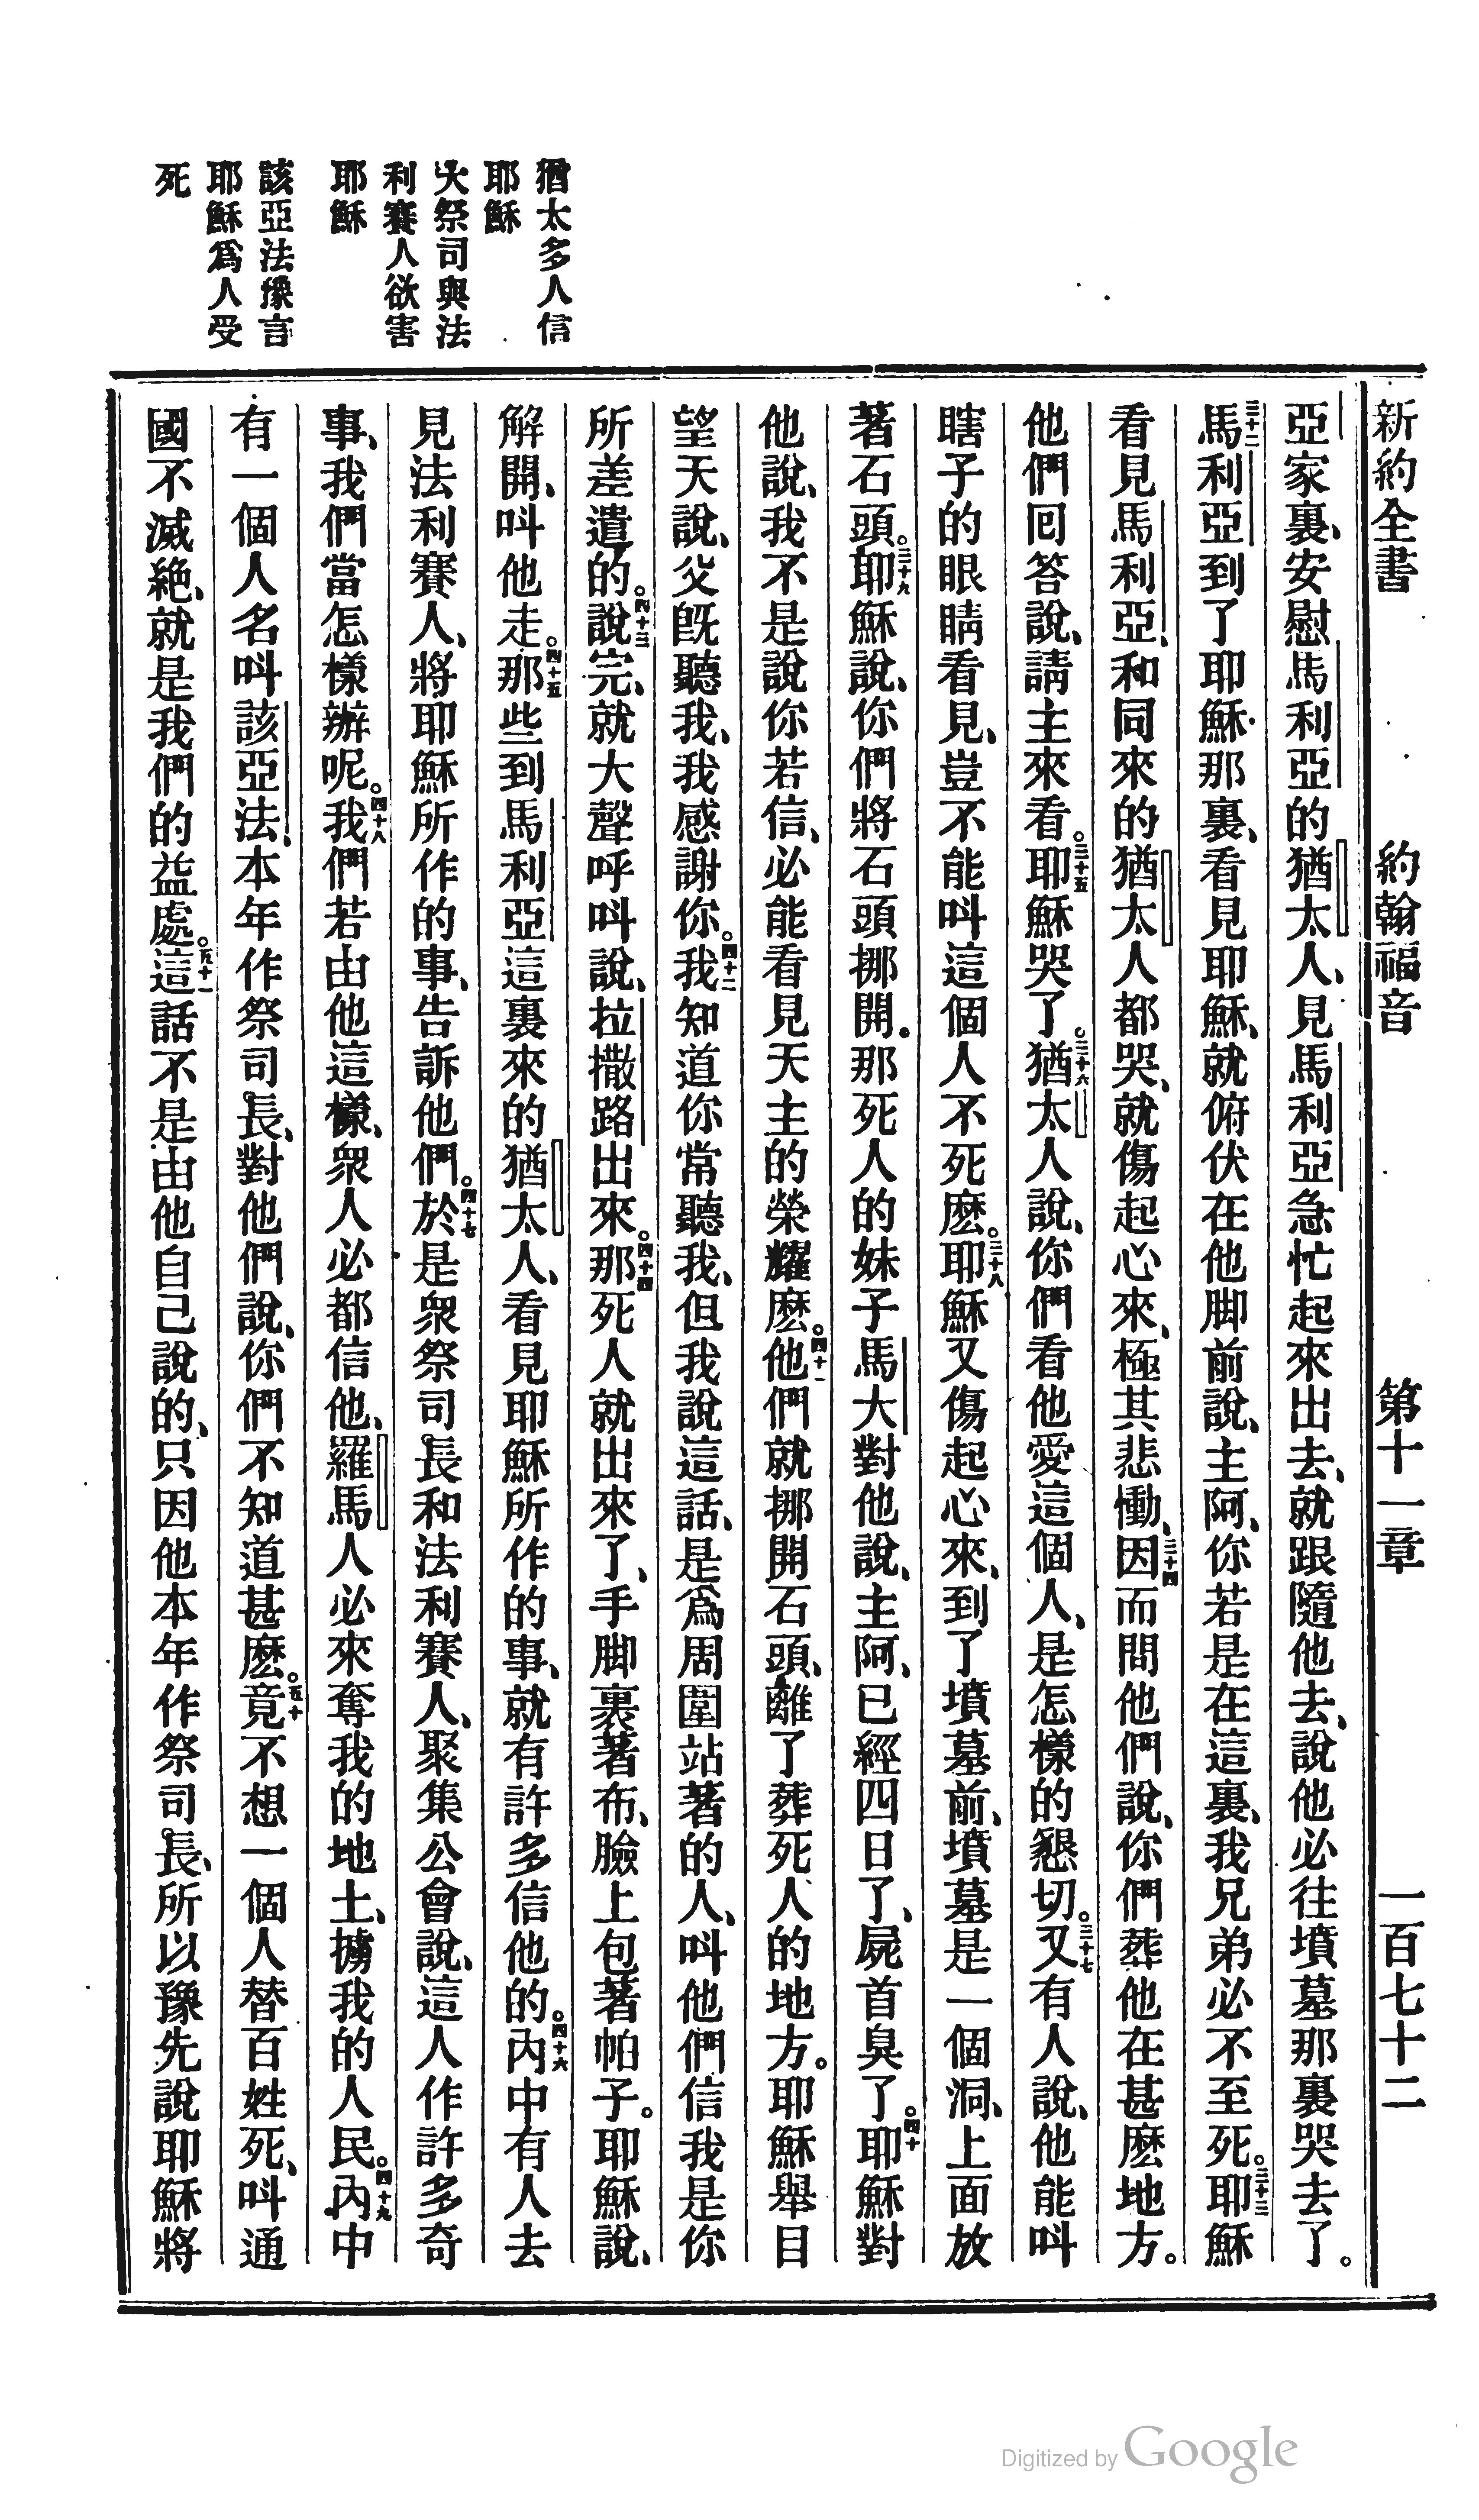 新約全書　約翰福音　第十一章　一百七十二
亞家裏、安慰馬利亞的猶太人、見馬利亞急忙起來出去、就跟隨他去、說他必往墳墓那裏哭去了。
三十二馬利亞到了耶穌那裏、看見耶穌、就俯伏在他脚前說、主阿、你若是在這裏、我兄弟必不至死。三十三耶穌
看見馬利亞、和同來的猶太人都哭、就傷起心來、極其悲慟、三十四因而問他們說、你們葬他在甚麽地方。
他們回答說、請主來看。三十五耶穌哭了。三十六猶太人說、你們看他愛這個人、是怎樣的懇切。三十七又有人說、他能呌
瞎子的眼睛看見、豈不能呌這個人不死麽。三十八耶穌又傷起心來、到了墳墓前、墳墓是一個洞、上面放
著石頭。三十九耶穌說、你們將石頭挪開。那死人的妹子馬大對他說、主阿、已經四日了、屍首臭了。四十耶穌對
他說、我不是說你若信、必能看見天主的榮耀麽。四十一他們就挪開石頭、離了葬死人的地方。耶穌舉目
望天說、父旣聽我、我感謝你。四十二我知道你常聽我、但我說這話、是爲周圍站著的人、呌他們信我是你
所差遣的。四十三說完、就大聲呼呌說、拉撒路出來。四十四那死人就出來了、手脚裹著布、臉上包著帕子。耶穌說、
解開、呌他走。四十五那些到馬利亞這裏來的猶太人、看見耶穌所作的事、就有許多信他的。四十六內中有人去
見法利賽人、將耶穌所作的事、告訴他們。四十七於是衆祭司長和法利賽人、聚集公會說、這人作許多奇
事、我們當怎樣辦呢。四十八我們若由他這樣、衆人必都信他、羅馬人必來奪我的地土、擄我的人民。四十九內中
有一個人名呌該亞法、本年作祭司長、對他們說、你們不知道甚麽。五十竟不想一個人替百姓死、呌通
國不滅絕、就是我們的益處。五十一這話不是由他自己說的、只因他本年作祭司長、所以豫先說耶穌將
猶太多人信
耶穌
大祭司與法
利賽人欲害
耶穌
該亞法豫言
耶穌爲人受
死
Digitized by Google